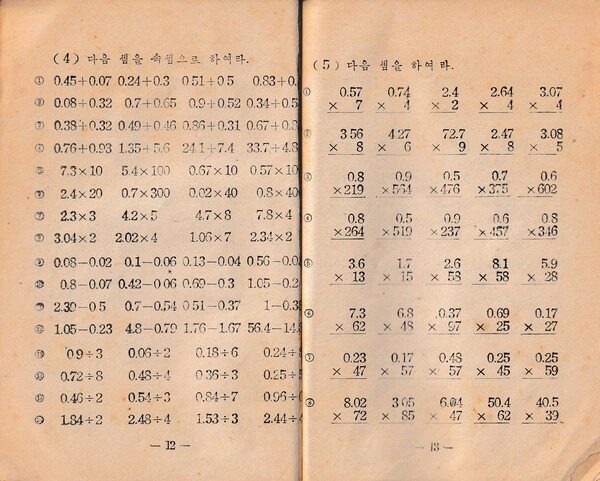 (4) 다음 셈을 속셈으로 하여라.
① 0.45+0.07 0.24+0.3 0.51+0.5 0.83+0.
② 0.08+0.32 0.7+0.65 0.9+0.52 0.34+0.5
③ 0.38+0.32 0.49+0.46 0.86+0.31 0.67+0.3
④ 0.76+0.93 1.35+5.6 24.1+7.4 33.7+4.8
⑤ 7.3×10 5.4×100 0.67×10 0.57×10
⑥ 2.4×20 0.7×300 0.02×40 0.8×40
⑦ 2.3×3 4.2×5 4.7×8 7.8×4
⑧ 3.04×2 2.02×4 1.06×7 2.34×2
⑨ 0.08−0.02 0.1−0.06 0.13−0.04 0.56−0.0
⑩ 0.8−0.07 0.42−0.06 0.69−0.3 1.05−0.2
⑪ 2.39−0.5 0.7−0.54 0.51−0.37 1−0.3
⑫ 1.05−0.23 4.8−0.79 1.76−1.67 56.4−14.
⑬ 0.9÷3 0.06÷2 0.18÷6 0.24÷
⑭ 0.72÷8 0.48÷4 0.36÷3 0.25÷
⑮ 0.46÷2 0.54÷3 0.84÷7 0.96÷
⑯ 1.84÷2 2.48÷4 1.53÷3 2.44÷
— 12 —
(5) 다음 셈을 하여라.
① 0.57 0.74 2.4 2.64 3.07
× 7 × 4 × 2 × 4 × 4
② 3.56 4.27 72.7 2.47 3.08
× 8 × 6 × 9 × 8 × 5
③ 0.8 0.9 0.5 0.7 0.6
×219 ×564 ×476 ×375 ×602
④ 0.8 0.5 0.9 0.6 0.8
×264 ×519 ×237 ×457 ×346
⑤ 3.6 1.7 2.6 8.1 5.9
× 13 × 15 × 58 × 58 × 28
⑥ 7.3 6.8 0.37 0.69 0.17
× 62 × 48 × 97 × 25 × 27
⑦ 0.23 0.17 0.48 0.25 0.25
× 47 × 57 × 57 × 45 × 59
⑧ 8.02 3.05 6.04 50.4 40.5
× 72 × 85 × 47 × 62 × 39
— 13 —